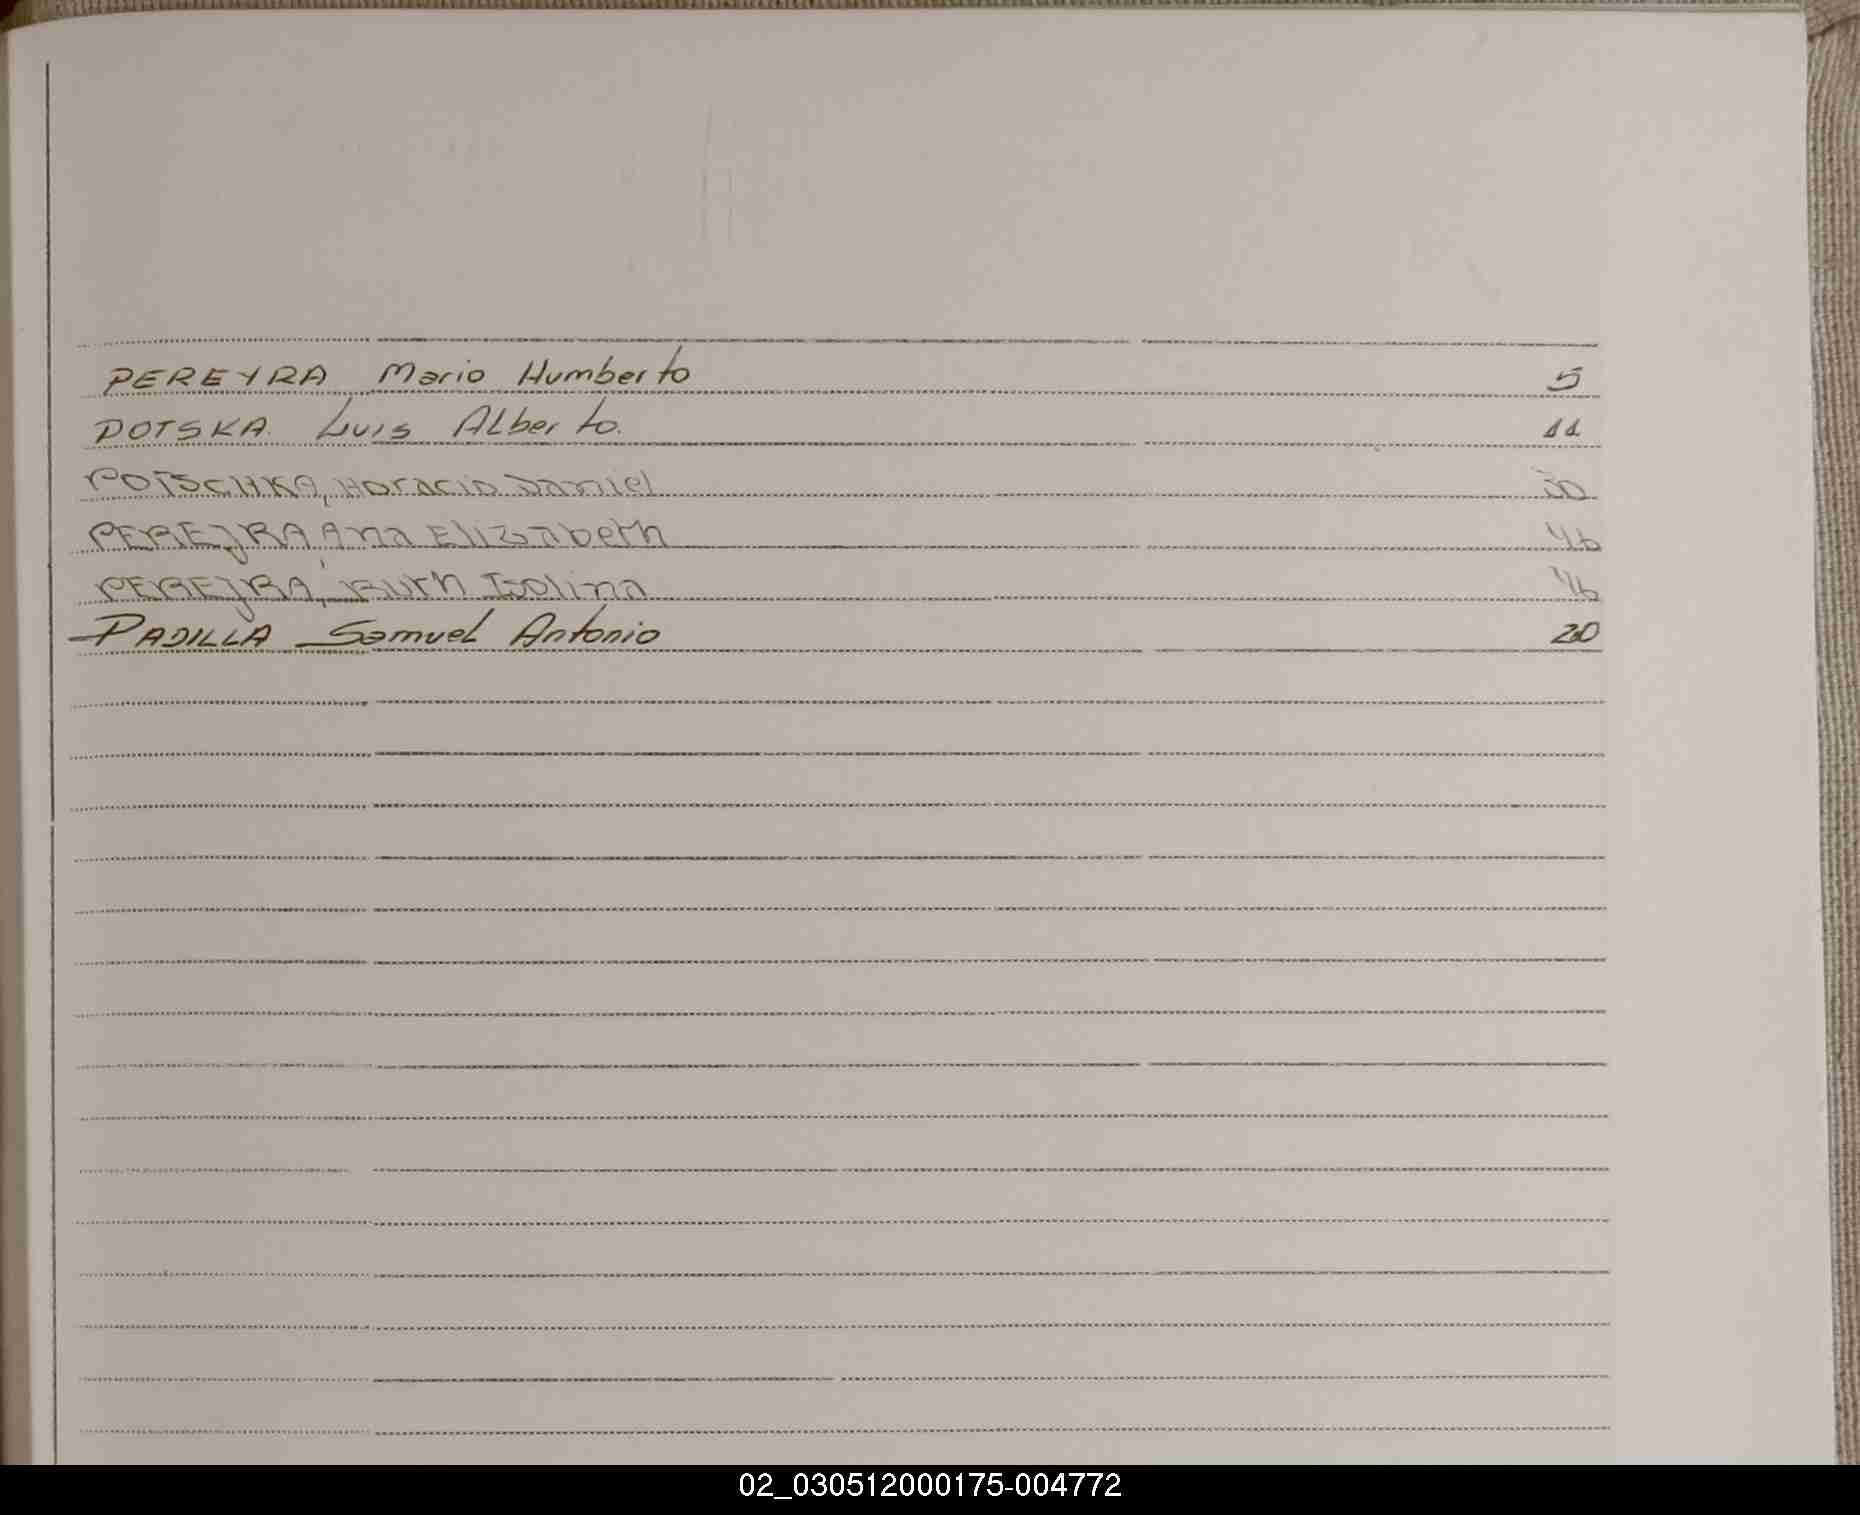 PEREYRA Mario Humberto 5
POTSKA Luis Alberto. 11
POTSCHKA, Horacio Daniel 30
PEREJRA, Ana Elizabeth 46
PEREJRA, Ruth Isolina 46
PADILLA Samuel Antonio 20
02_030512000175-004772